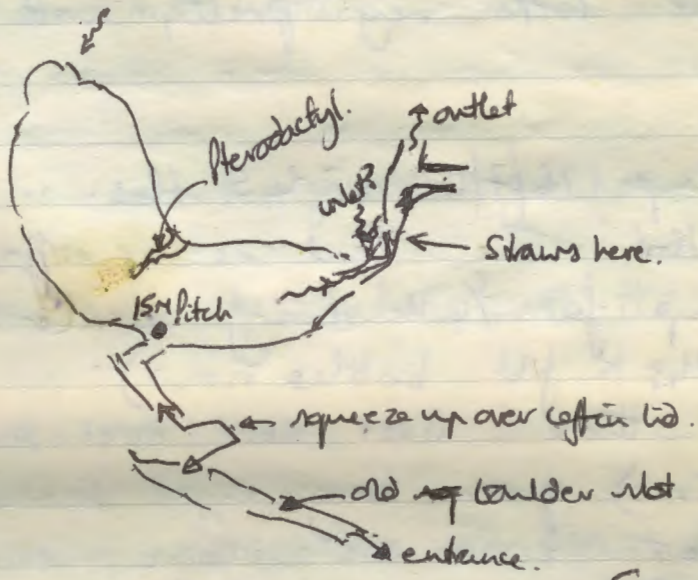 outlet
Pterodactyl.
inlet?
Straws here.
15M Pitch
squeeze up over coffin lid.
old boulder slot
entrance.